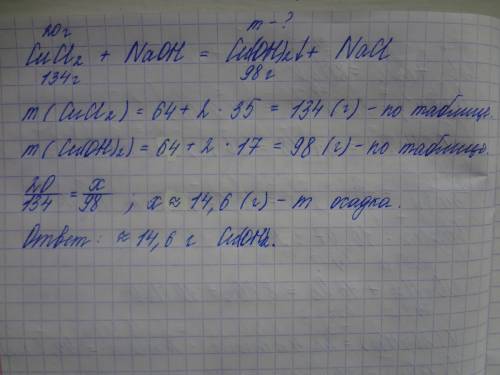 20г m-?
CuCl₂ + NaOH = Cu(OH)₂↓ + NaCl
134г 98г
m(CuCl₂) = 64 + 2 · 35 = 134 (г) - по таблице.
m(Cu(OH)₂) = 64 + 2 · 17 = 98 (г) - по таблице.
20/134 = x/98 ; x ≈ 14,6 (г) - m осадка.
Ответ: ≈ 14,6 г Cu(OH)₂.